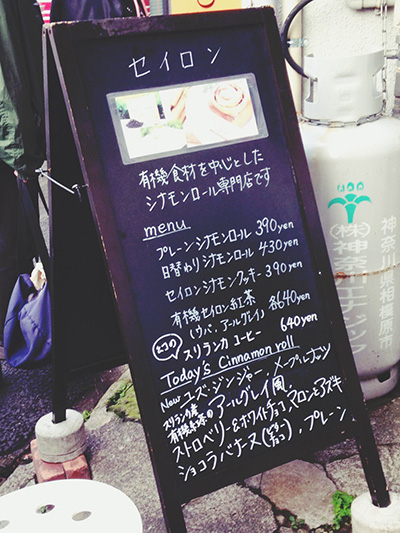 セイロン
有機食材を中心とした
シナモンロール専門店です
menu
プレーンシナモンロール 390yen
日替わりシナモンロール 430yen
セイロンシナモンクッキー 390yen
有機セイロン紅茶 各640yen
(ウバ、アールグレイ)
スリランカコーヒー 640yen
Today's Cinnamon roll
New ユズ・ジンジャー、メープルナッツ
スリランカ産
有機紅茶のアールグレイ風
ストロベリー&ホワイトチョコ、マロンとアズキ
ショコラバナーヌ(チョコ)、プレーン
(株)神奈川エナジック
神奈川県相模原市